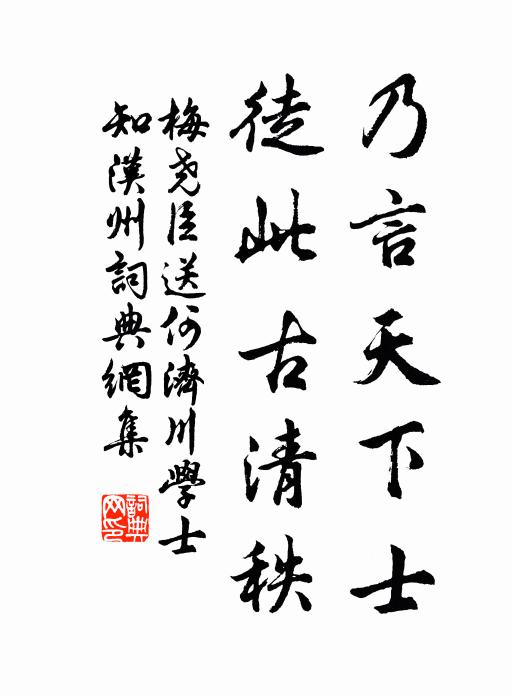 乃言天下士
徒此古清秩
梅堯臣送何濟川學士
知漢州詞典網集
詞典網印